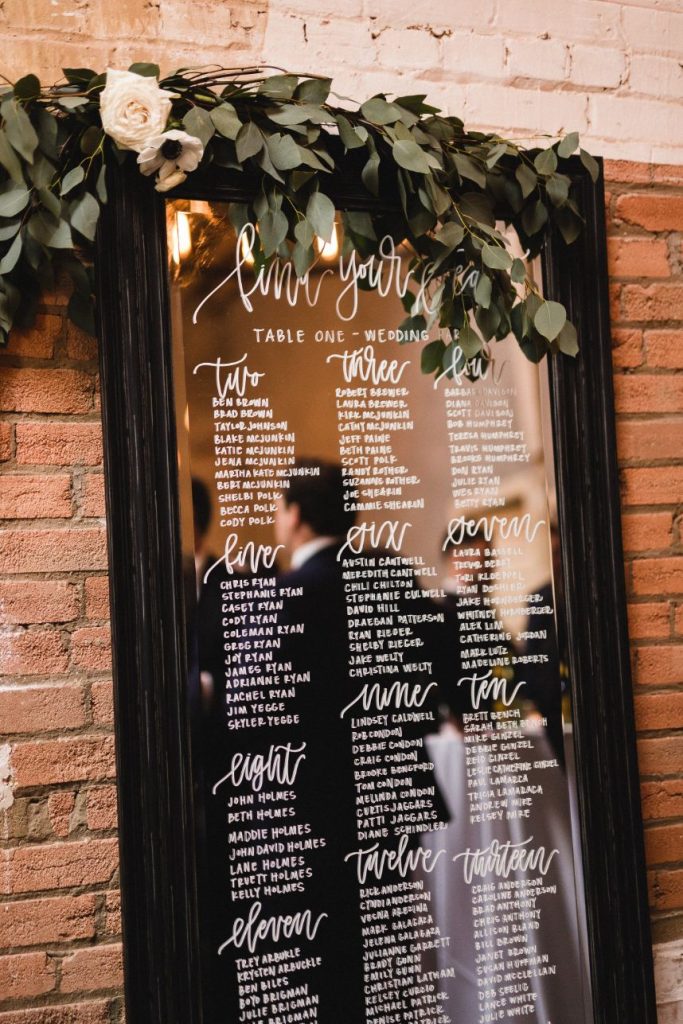 find your
TABLE ONE - WEDDING
two
BEN BROWN
BRAD BROWN
TAYLOR JOHNSON
BLAKE MCJUNKIN
KATIE MCJUNKIN
JENA MCJUNKIN
MARTHA KATE MCJUNKIN
BERT MCJUNKIN
SHELBI POLK
BECCA POLK
CODY POLK
three
ROBERT BREWER
LAURA BREWER
KIRK MCJUNKIN
CATHY MCJUNKIN
JEFF PAINE
BETH PAINE
SCOTT POLK
RANDY ROTHER
SUZANNE ROTHER
JOE SHEARIN
CAMMIE SHEARIN
four
BARBARA DAVISON
DIANA DAVISON
SCOTT DAVISON
BOB HUMPHREY
TERESA HUMPHREY
TRAVIS HUMPHREY
BROOKS HUMPHREY
DON RYAN
JULIE RYAN
WES RYAN
BETTY RYAN
five
CHRIS RYAN
STEPHANIE RYAN
CASEY RYAN
CODY RYAN
COLEMAN RYAN
GREG RYAN
JOY RYAN
JAMES RYAN
ADRIANNE RYAN
RACHEL RYAN
JIM YEGGE
SKYLER YEGGE
six
AUSTIN CANTWELL
MEREDITH CANTWELL
CHILI CHILTON
STEPHANIE CULWELL
DAVID HILL
DRAEGAN PATTERSON
RYAN RIEDER
SHELBY RIEGER
JAKE WELTY
CHRISTINA WELTY
seven
LAURA BASSELL
TREVOR BERRY
TORI KLOEPPEL
RYAN
JAKE HORNBERGER
WHITNEY HORNBERGER
ALEX LIM
CATHERINE JORDAN
MARK LUTZ
MADELINE ROBERTS
eight
JOHN HOLMES
BETH HOLMES
MADDIE HOLMES
JOHN DAVID HOLMES
LANE HOLMES
TRUETT HOLMES
KELLY HOLMES
nine
LINDSEY CALDWELL
ROB CONDON
DEBBIE CONDON
CRAIG CONDON
BROOKE BENGFORD
TOM CONDON
MELINDA CONDON
CURTIS JAGGARS
PATTI JAGGARS
DIANE SCHINDLER
ten
BRETT BENCH
SARAH BETH BENCH
MIKE GINZEL
DEBBIE GINZEL
REID GINZEL
LESLIE CATHERINE GINZEL
PAUL LAMARCA
TRICIA LAMARACA
ANDREW MIKE
KELSEY MIKE
eleven
TREY ARBUCKLE
KRYSTEN ARBUCKLE
BEN BILES
BOYD BRIGMAN
JULIE BRIGMAN
twelve
RICK ANDERSON
CYNDI ANDERSON
VESNA
MARK GALAGAZA
JELENA GALAGAZA
JULIANNE GARRETT
BRADY GUNN
EMILY GUNN
CHRISTIAN LATHAM
KELSEY CURRIO
MICHAEL PATRICK
DENISE PATRICK
thirteen
CRAIG ANDERSON
CAROLINE ANDERSON
BRAD ANTHONY
CHRIS ANTHONY
ALLISON BLAND
BILL BROWN
JANET BROWN
SUSAN HUFFMAN
DAVID MCCLELLAN
DEB SEELIG
LANCE WHITE
JULIE WHITE